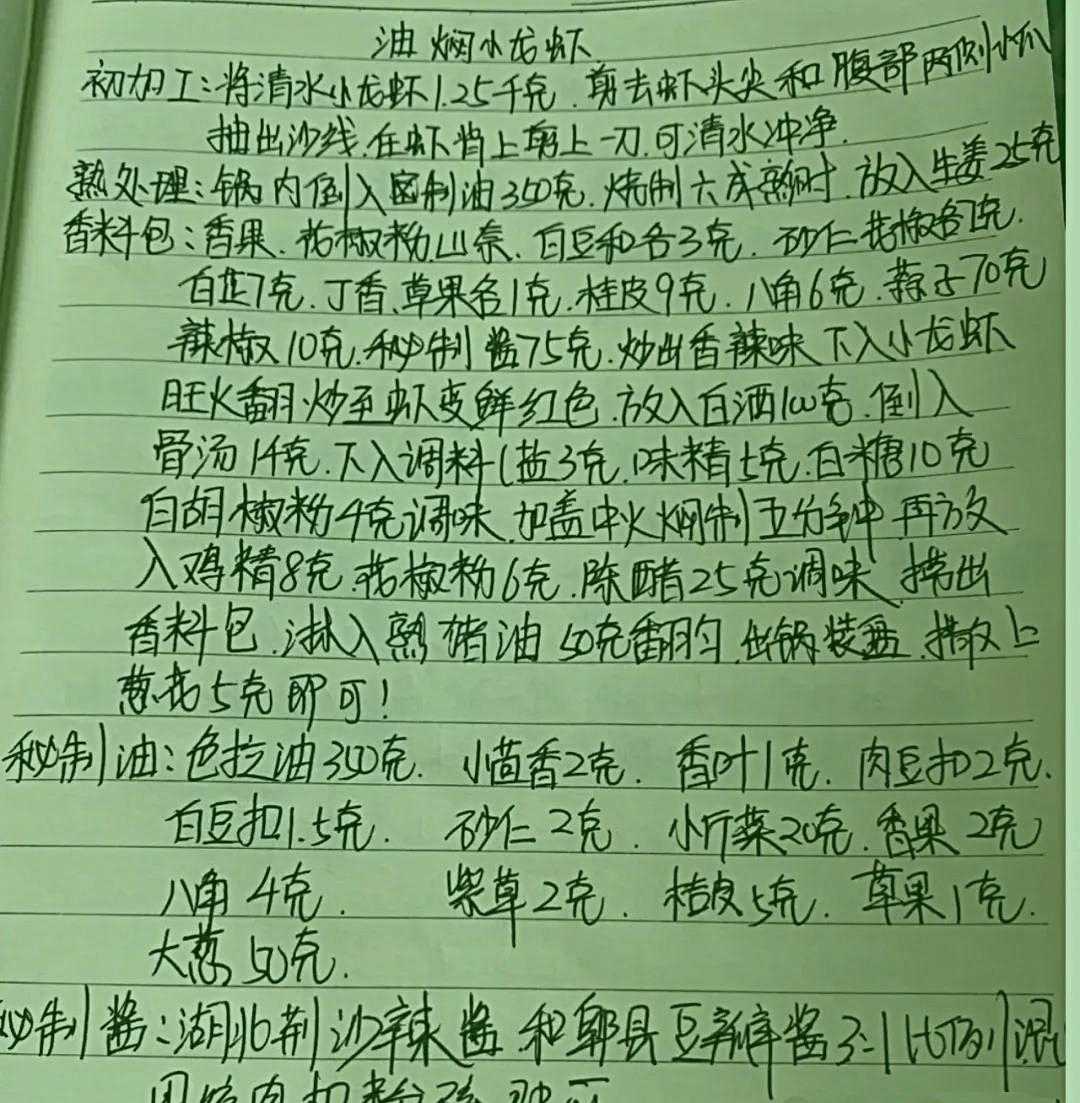 油焖小龙虾
初加工:将清水小龙虾1.25千克.剪去虾头尖和腹部两侧小爪
抽出沙线.在虾背上剪上一刀.可清水冲净.
熟处理:锅内倒入密制油350克.烧制六成熟时.放入生姜25克
香料包:香果.花椒粉山奈.白豆和各3克.砂仁花椒各克.
白芷7克.丁香.草果各1克.桂皮9克.八角6克.蒜子70克
辣椒10克.秘制酱75克.炒出香辣味下入小龙虾
旺火翻炒至虾变鲜红色.放入白酒100克.倒入
骨汤1千克.下入调料(盐3克.味精5克.白糖10克
白胡椒粉4克调味.加盖中火焖制五分钟再放
入鸡精8克.花椒粉6克.陈醋25克调味.捞出
香料包.淋入熟猪油50克翻匀.出锅装盘.撒上
葱花5克即可!
秘制油:色拉油350克.小茴香2克.香叶1克.肉豆扣2克.
白豆扣1.5克.砂仁2克.小斤菜20克.香果2克
八角4克.紫草2克.桔皮5克.草果1克.
大葱50克.
秘制酱:湖北荆沙辣酱和郫县豆瓣酱3:1比例混